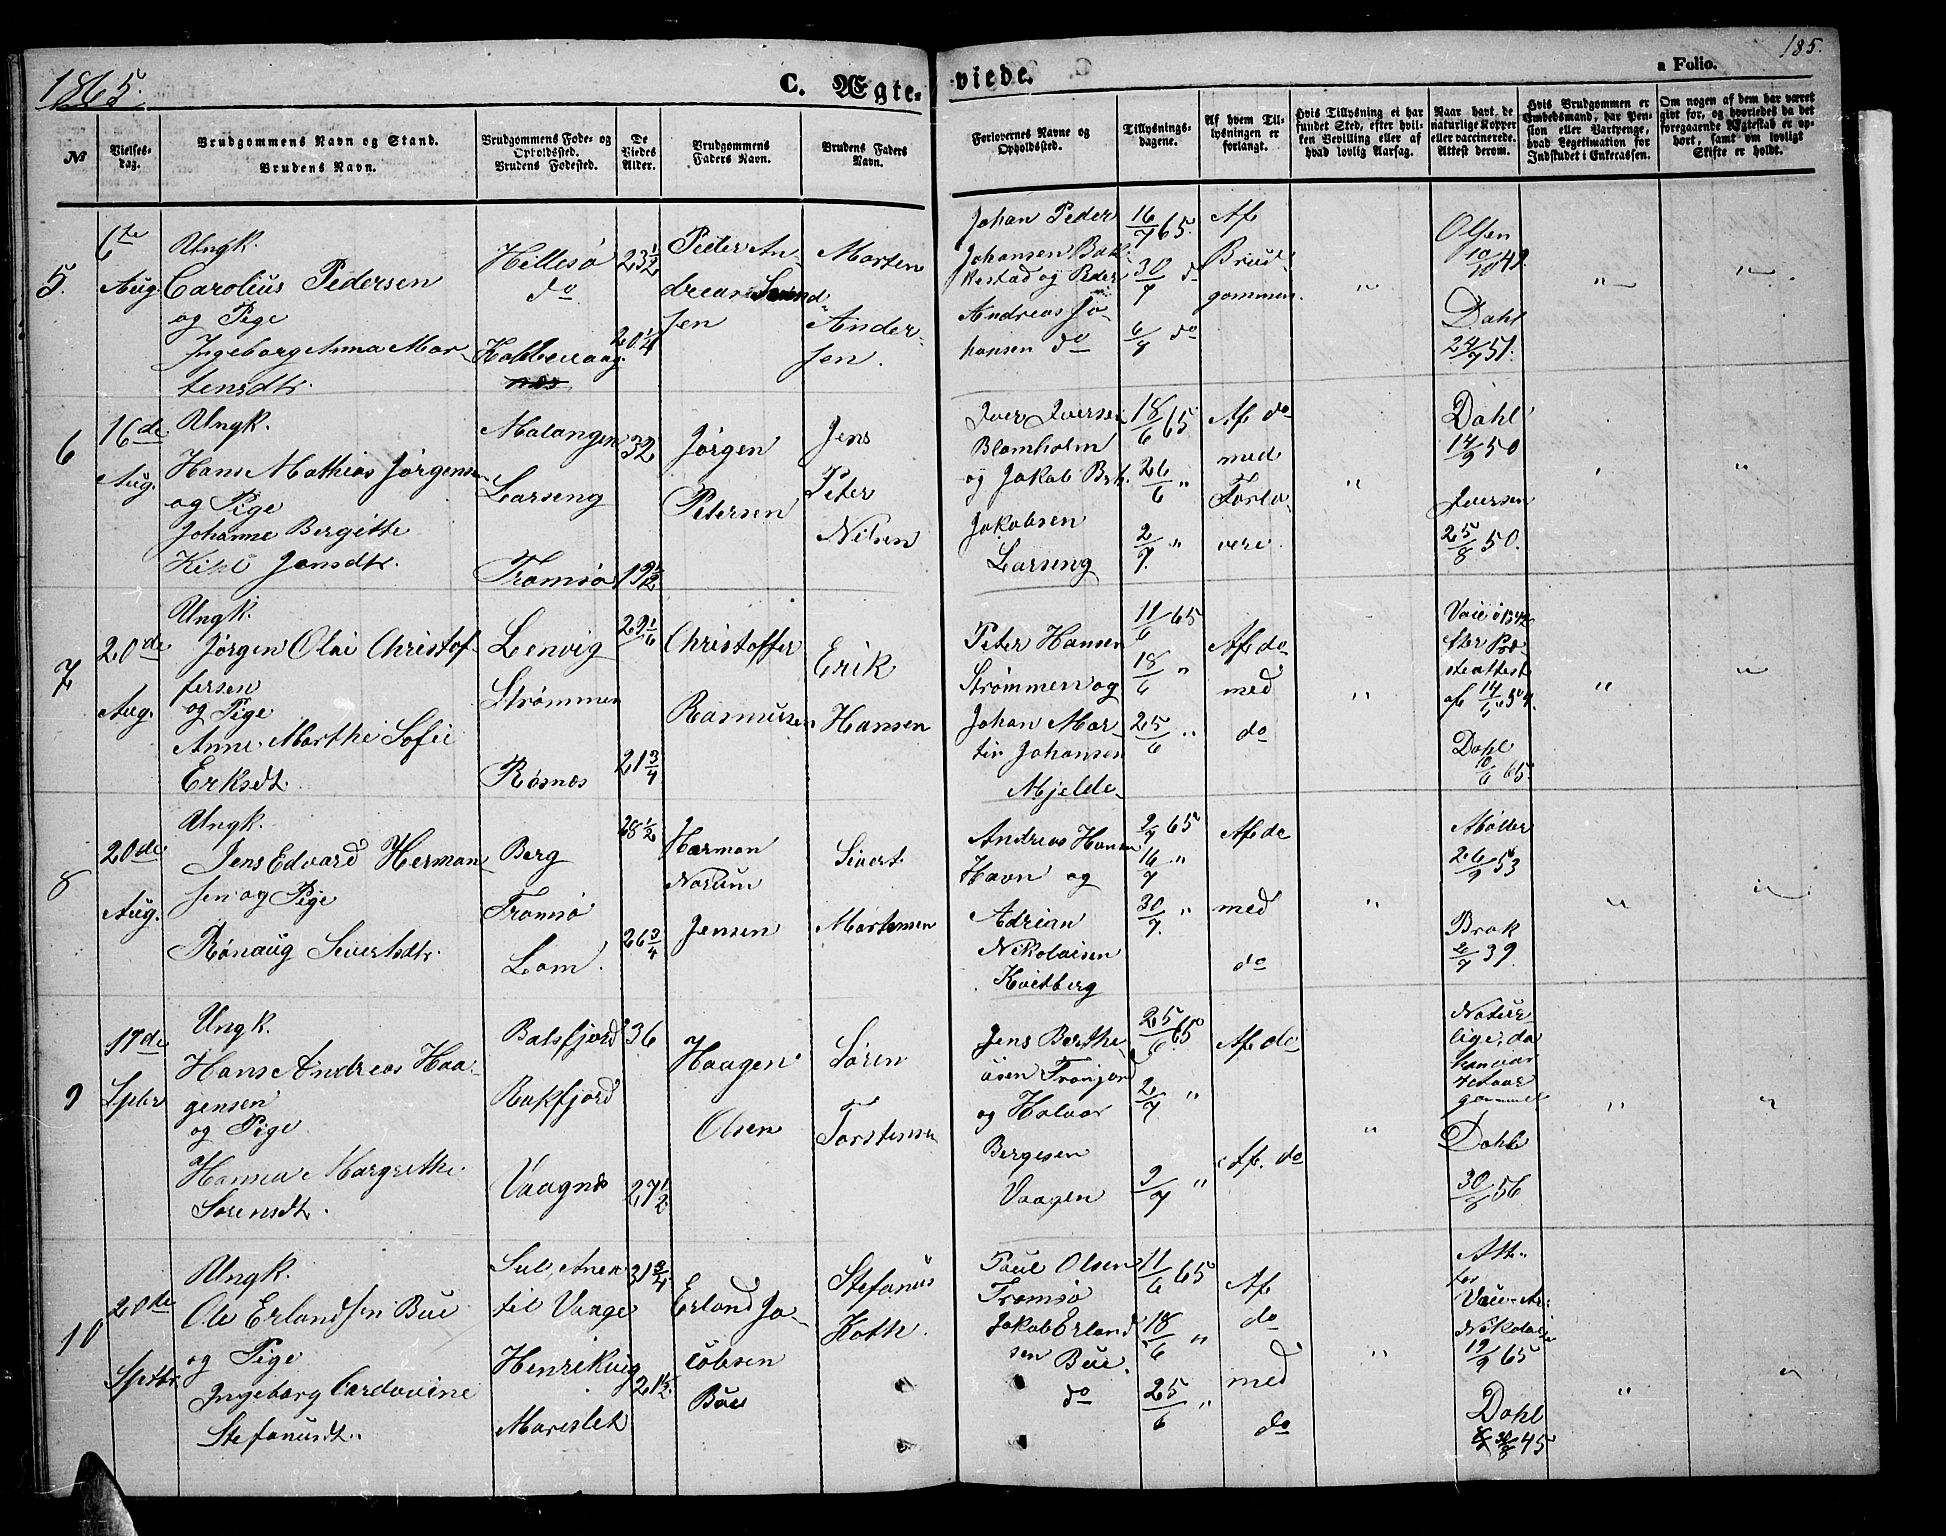 1865.
C. Ægte-
viede.
a Folio.
185.
№
Vielses-
dag.
Brudgommens Navn og Stand.
Brudens Navn.
Brudgommens Føde- og
Opholdssted.
Brudens Fødested.
De
Viedes
Alder.
Brudgommens
Faders Navn.
Brudens Faders
Navn.
Forlovernes Navne og
Opholdssted.
Tillysnings-
dagene.
Af hvem Til-
lysningen er
forlangt.
Hvis Tillysning ei har
fundet Sted, efter hvil-
ken Bevilling eller af
hvad lovlig Aarsag.
Naar havt de
naturlige Kopper
eller vaccinerede.
Attest derom.
Hvis Brudgommen er
Embedsmand, har Pen-
sion eller Vartpenge,
hvad Legitimation for
Indskudet i Enkecassen.
Om nogen af dem har været
givt før, og hvorledes da det
foregaaende Ægteskab er op-
hørt, samt om lovligt
Skifte er holdt.
5.
6te
Aug.
Ungk.
Carolius Pedersen
og Pige
Ingeborg Anna Mor-
tensdtr.
Hillesø
do
23½
20¼
Peder An-
dreas
sen
Morten
Ander-
sen.
Johan Peder
Johansen Bak-
kestad og Peder
Andreas Jo-
hansen do
16/7 65.
30/7 do
6/8 do
Af
Brud-
gommen.
"
Olsen
Dahl
24/7 51.
"
"
6
16de
Aug.
Ungk.
Hans Mathias Jørgensen
og Pige
Johanne Bergitte
Kihl Jensdtr.
Malangen
Larseng
Tromsø
32
19½
Jørgen
Petersen
Jens
Peter
Nilsen
Iver Iversen
Blomholm
og Jakob
Jakobsen
Larseng
18/6 65
26/6 "
2/7 "
Af do
med
Forlo-
vere
"
Dahl
14/9 50
Iversen
25/8 50.
"
"
7
20de
Aug.
Ungk.
Jørgen Olai Christof-
fersen
og Pige
Anne Marthe Sofie
Eriksdt.
Lenvig
Strømmen
Røsnæs
29 1/6
21¾
Christoffer
Rasmussen
Erik
Hansen
Peter Hansen
Strømmen og
Johan Mar-
tin Johansen
Mjelde
11/6 65
18/6 "
25/6 "
Af do
med
do
"
Dahl
10/6 65.
"
"
8
20de
Aug.
Ungk.
Jens Edvard Herman
sen og Pige
Rønaug Sivertsdtr.
Berg
Tromsø
Lom.
28½
26¾
Herman
Norum
Jensen
Sivert
Mortensen
Andreas Hansen
Havn og
Adrian
Nikolaisen
Kvitberg
2/7 65
16/7 "
30/7 "
Af do
med
do
"
Møller
26/9 53
Brok
2/7 39.
"
"
9
17de
Spbr
Ungk.
Hans Andreas Haa-
gensen
og Pige
Hanna Margrethe
Sørensdt.
Balsfjord
Bakfjord
Vaagnæs
36
27½
Haagen
Olsen
Søren
Torstensen
Jens Berthe-
usen
og Halvor
Bergesen
Vaagen
25/6 65
2/7 "
9/7 "
Af do
Af. do
"
Natur-
lige, da
han var
4 Aar
gammel
Dahl
30/8 56
"
"
10
20de
Septbr.
Ungk.
Ole Erlandsen Bue
og Pige
Ingeborg Cardovine
Stefanusdt.
til Vange
Henrikvig
31¾
21½
Erland Ja-
cobsen
Bue
Stefanus
Koth.
Paul Olsen
Tromsø
Jakob Erland
sen Bue.
do
11/6 65
18/6 "
25/6 "
Af
do
med
do
"
Att.
for
Nikolai
19/9 65
Dahl
30/8 45
"
"